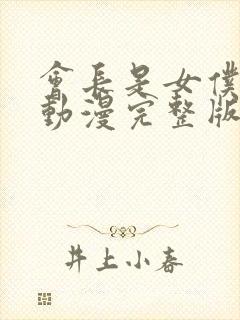 會長是女僕
動漫完整版
井上小春